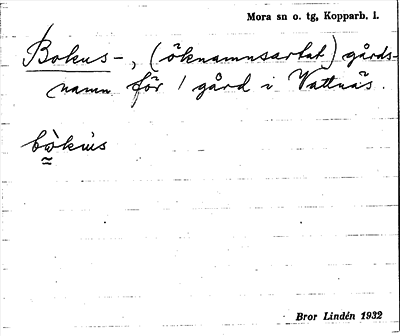 Mora sn o. tg, Kopparb. l.
Bokus-, (öknamnsartat) gårds-
namn för 1 gård i Vattnäs.
bòkùs
Bror Lindén 1932